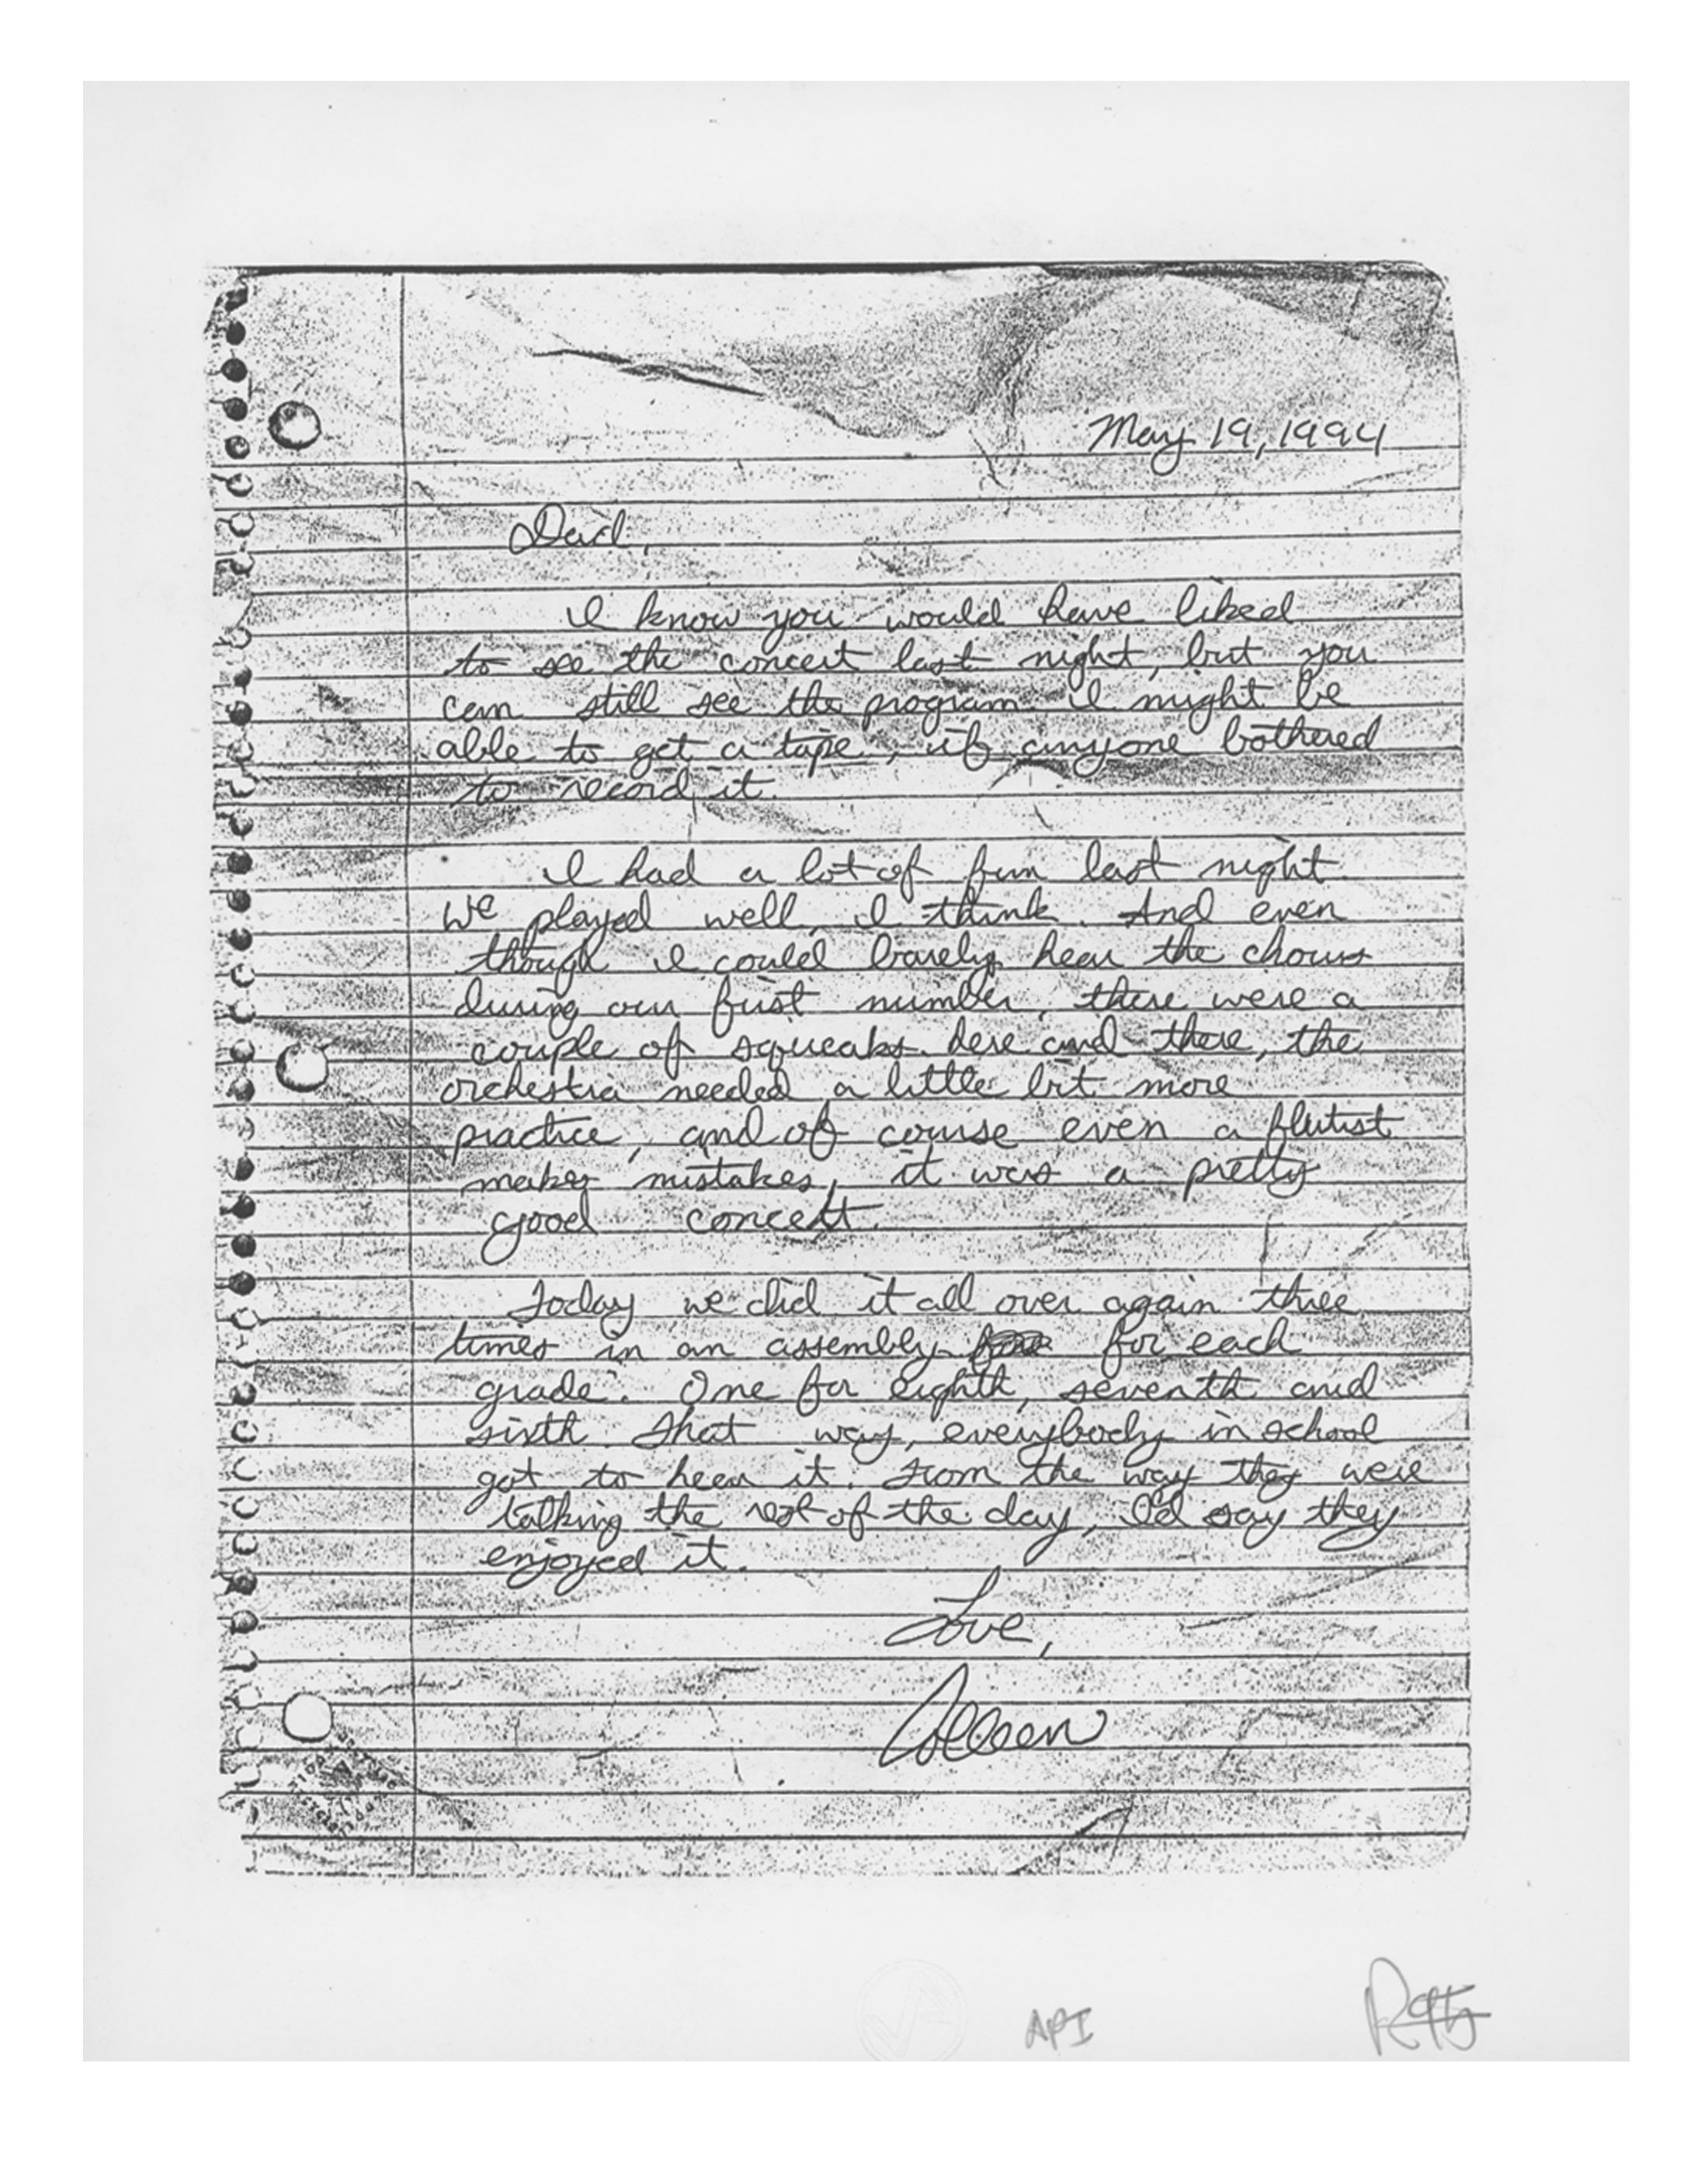 May 19, 1994
Dad,
I know you would have liked
to see the concert last night, but you
can still see the program. I might be
able to get a tape, if anyone bothered
to record it.
I had a lot of fun last night.
We played well, I think. And even
though I could barely hear the chorus
during our first number, there were a
couple of squeaks here and there, the
orchestra needed a little bit more
practice, and of course even a flutist
makes mistakes, it was a pretty
good concert.
Today we did it all over again three
times in an assembly for each
grade. One for eighth, seventh and
sixth. That way, everybody in school
got to hear it. From the way they were
talking the rest of the day, I'd say they
enjoyed it.
Love,
Colleen
API